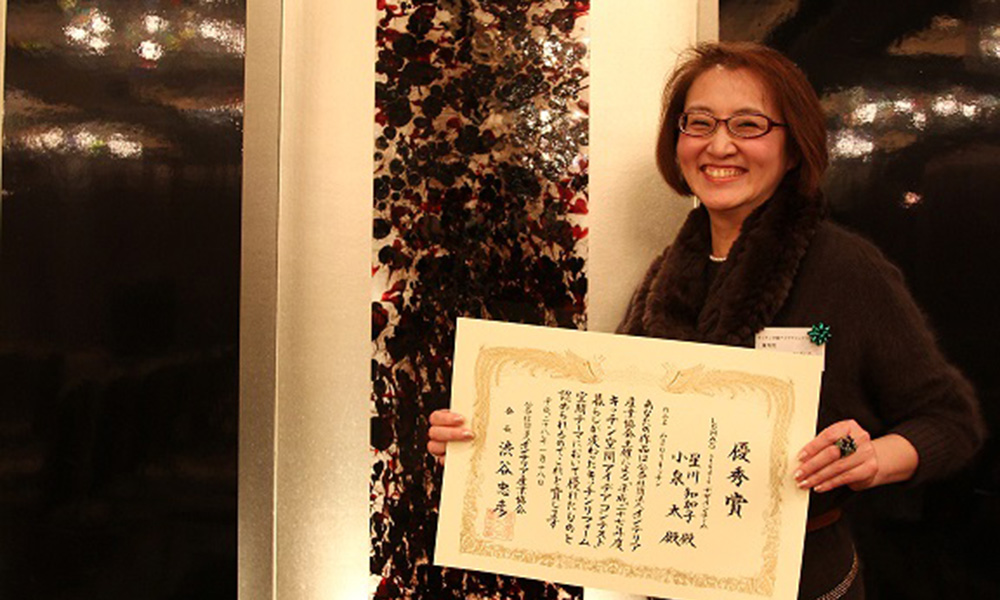 優秀賞
星川
小泉 太 殿
あなたの作品は公益社団法人インテリア
産業協会主催による平成二十七年度
キッチン空間アイデアコンテスト
暮らしが キッチンリフォーム
空間テーマにおいて優れたものと
認められるのでこれを賞します
平成二八年一月十八日
公益社団法人インテリア産業協会
会長 渋谷忠彦